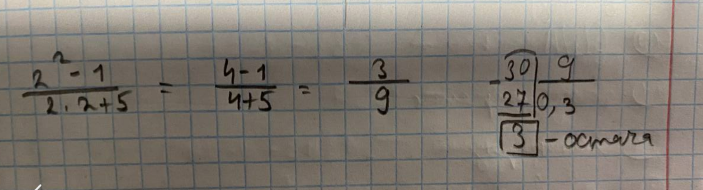 2² - 1 / 2 · 2 + 5 = 4 - 1 / 4 + 5 = 3 / 9
- 30 | 9
27 | 0,3
3 - остача